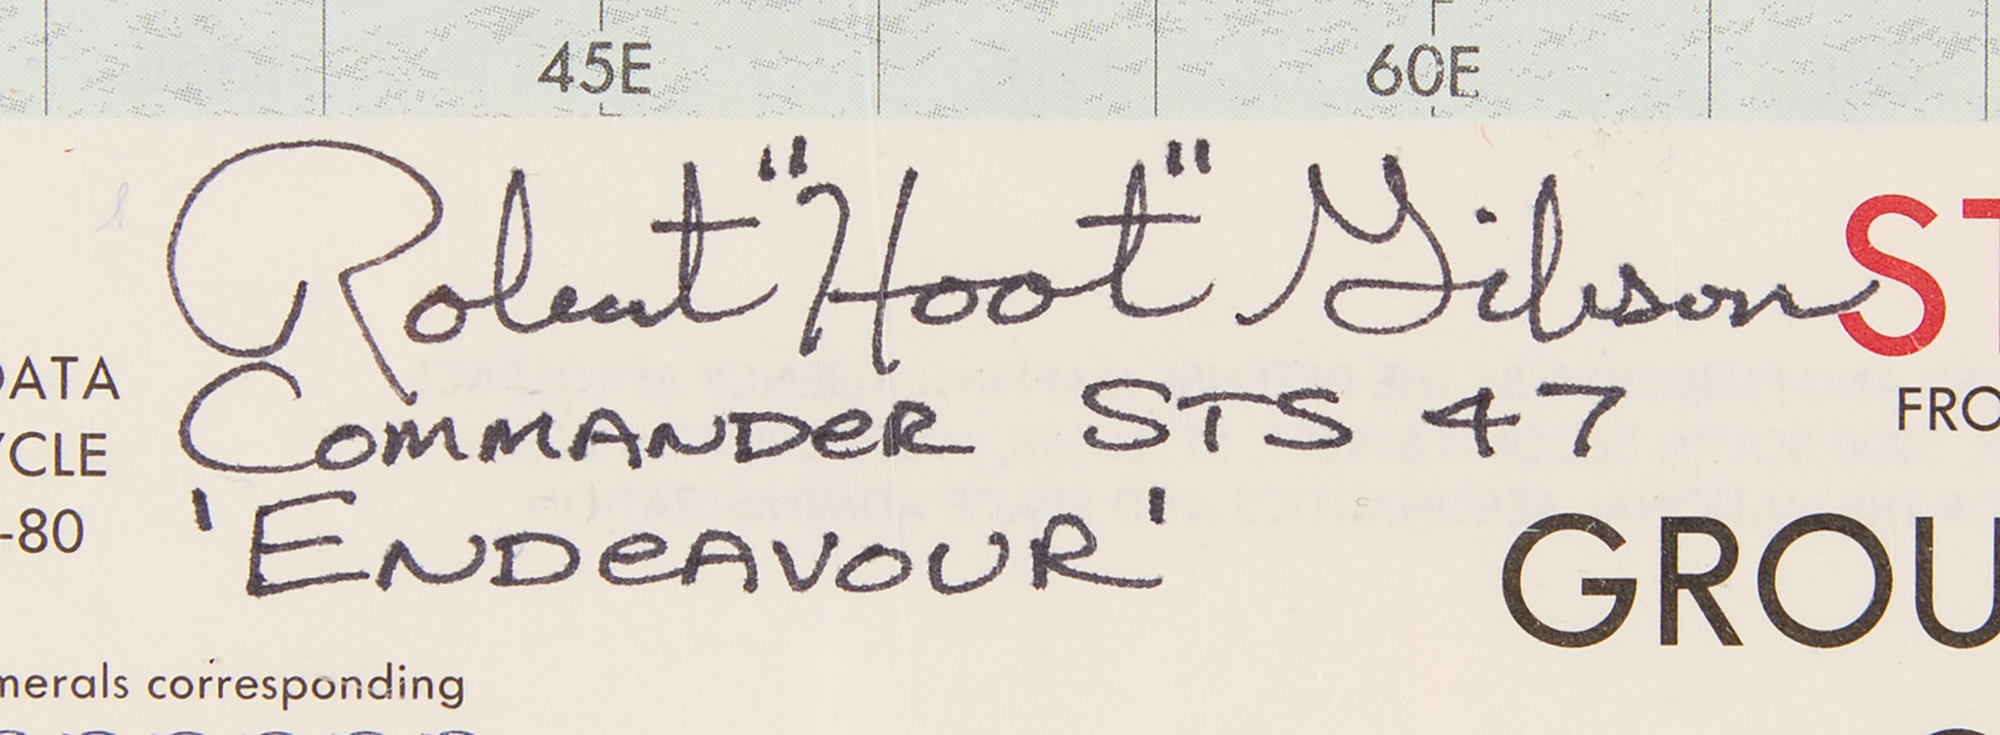 45E 60E
Robert "Hoot" Gibson ST
DATA COMMANDER STS 47 FRO
YCLE
'ENDEAVOUR'
-80 GROU
merals corresponding